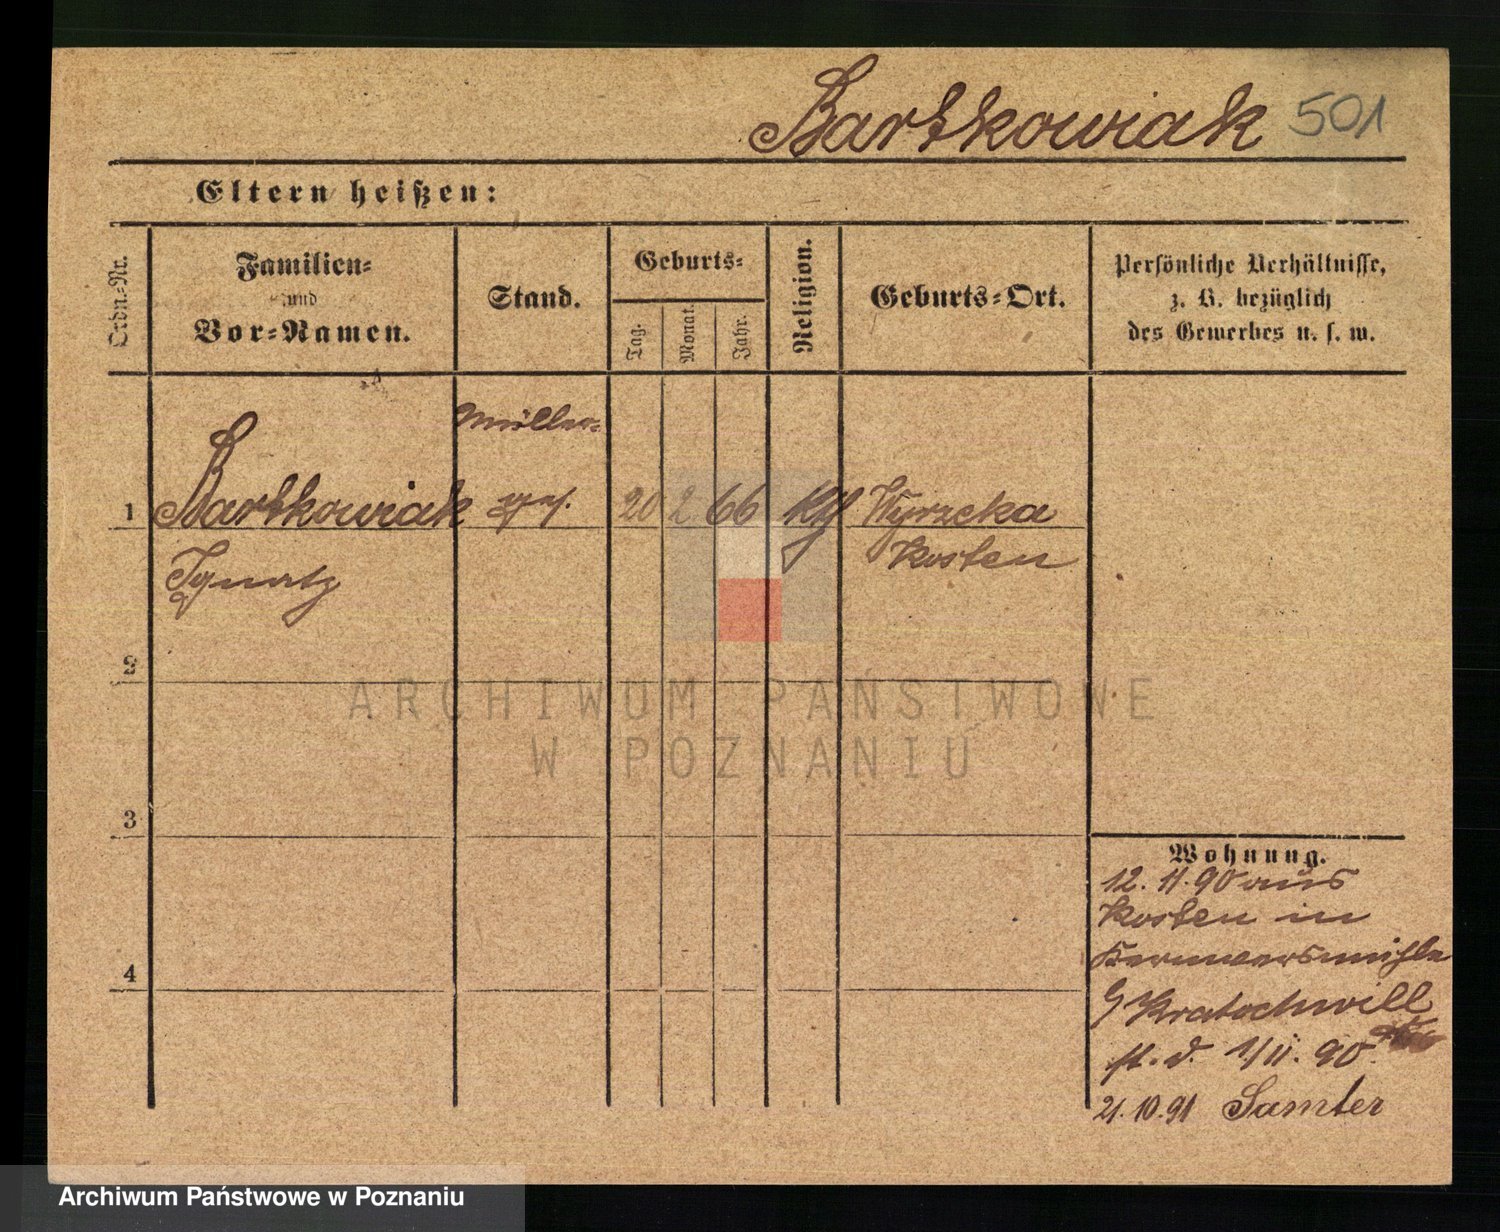 Bartkowiak 501
Eltern heißen:
Ordn.-Nr.
Familien-
und
Vor-Namen.
Stand.
Geburts-
Tag.
Monat.
Jahr.
Religion.
Geburts-Ort.
Persönliche Verhältnisse,
z. B. bezüglich
des Gewerbes u. s. w.
Müller-
1 Bartkowiak ges. 20 2 66 Wyrzcka
Ignatz Kosten
2
3
4
Wohnung.
12. 11. 90 aus
Kosten in
Kratochwill
st. d. 1/11. 90.
21.10.91 Samter
ARCHIWUM PAŃSTWOWE
W POZNANIU
Archiwum Państwowe w Poznaniu